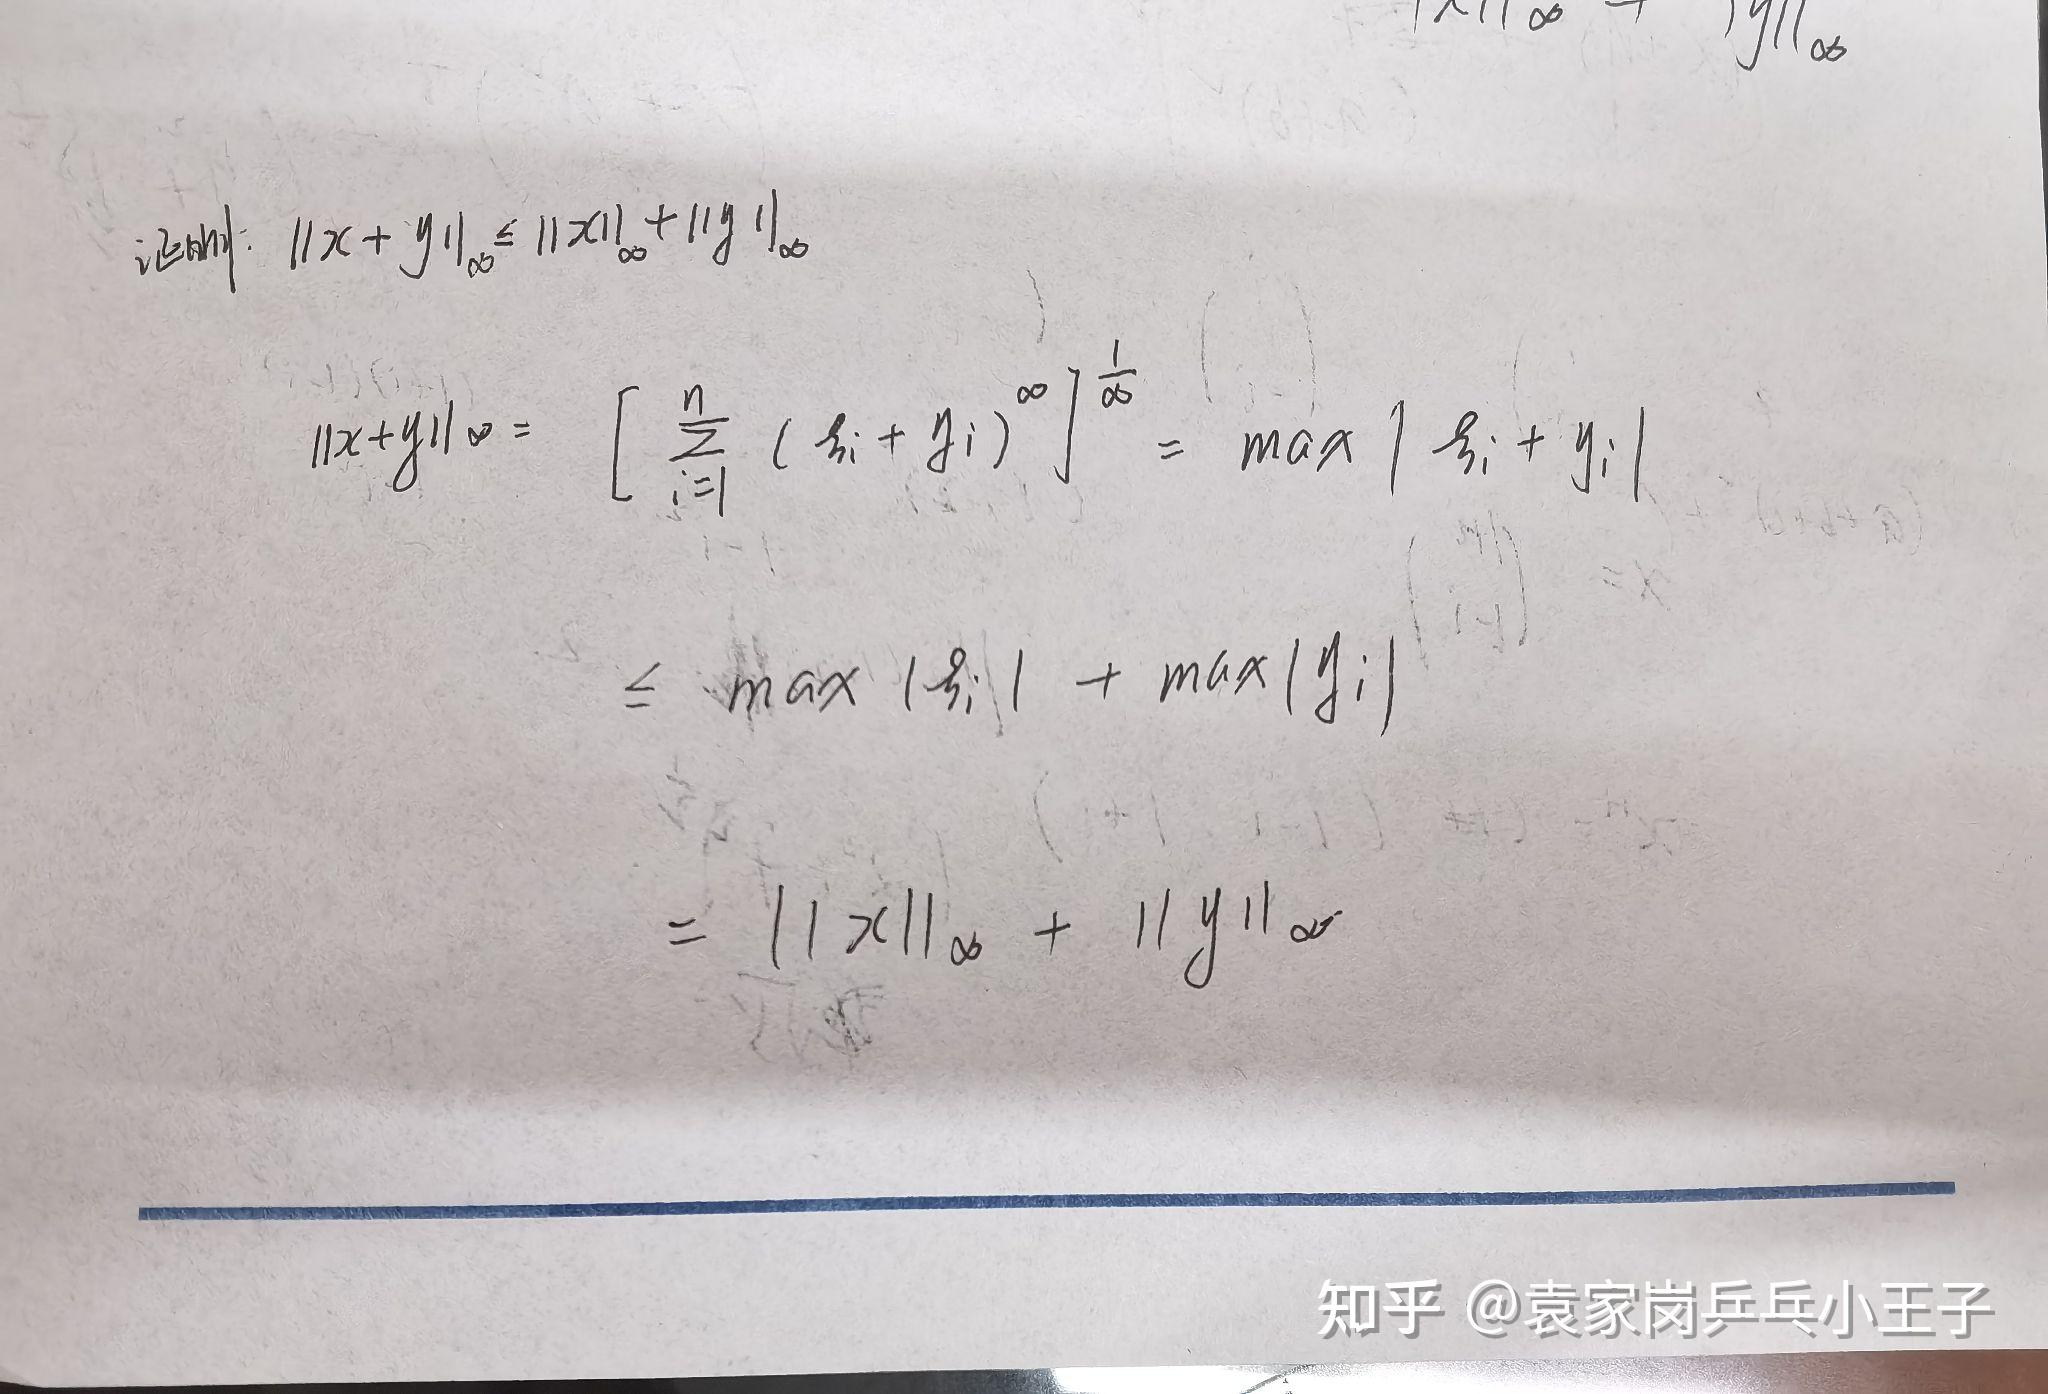 ‖x‖∞ + ‖y‖∞
证明: ‖x+y‖∞ ≤ ‖x‖∞ + ‖y‖∞
‖x+y‖∞ = [ ∑_{i=1}^{n} (ξi + yi)^∞ ]^{1/∞} = max | ξi + yi |
≤ max | ξi | + max | yi |
= ‖x‖∞ + ‖y‖∞
知乎 @袁家岗乒乓小王子